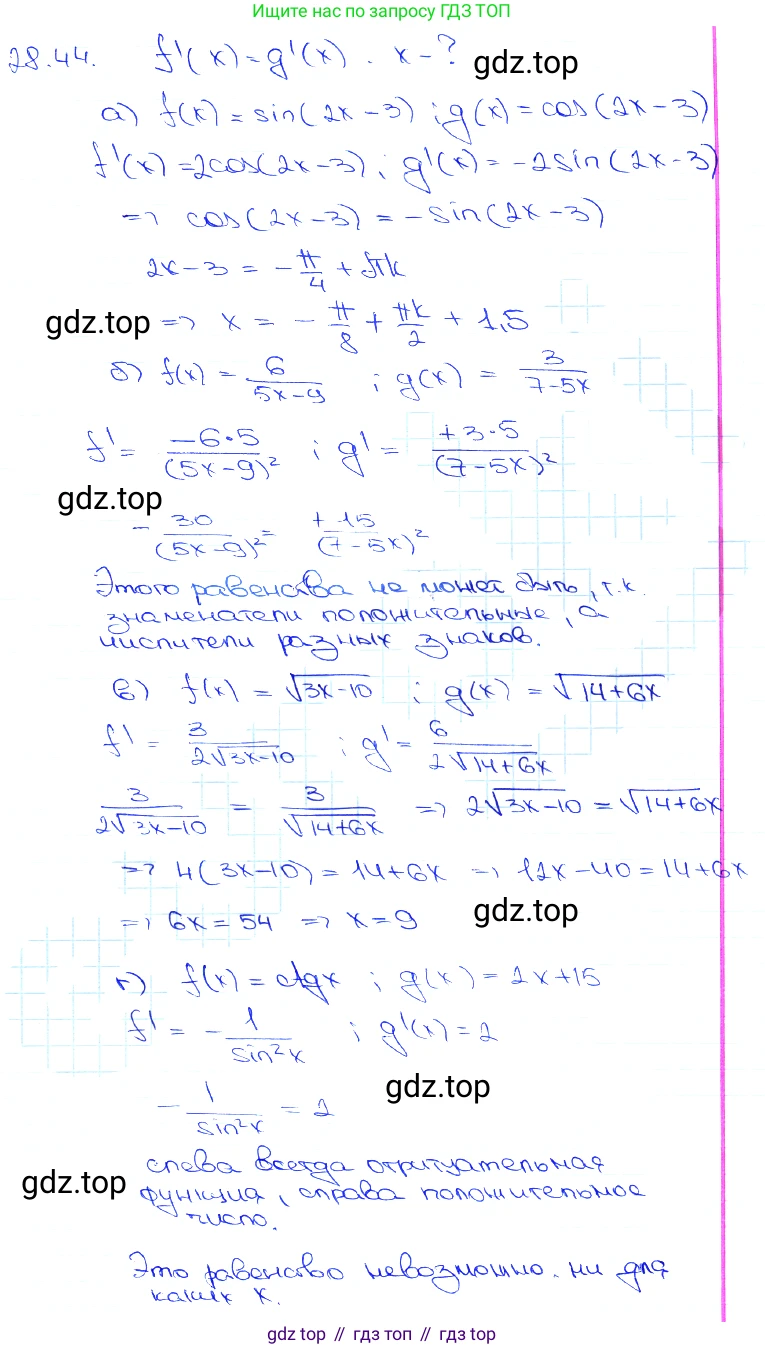 Ищите нас по запросу ГДЗ ТОП
28.44. f'(x) = g'(x). x - ? gdz.top
а) f(x) = sin(2x-3) ; g(x) = cos(2x-3)
f'(x) = 2cos(2x-3) ; g'(x) = -2sin(2x-3)
=> cos(2x-3) = -sin(2x-3)
2x-3 = -π/4 + πk
gdz.top => x = -π/8 + πk/2 + 1,5
б) f(x) = 6/(5x-9) ; g(x) = 3/(7-5x)
f' = -6·5/(5x-9)² ; g' = +3·5/(7-5x)²
gdz.top
-30/(5x-9)² = +15/(7-5x)²
Этого равенства не может быть, т.к.
знаменатели положительные, а
числители разных знаков.
в) f(x) = √(3x-10) ; g(x) = √(14+6x)
f' = 3/(2√(3x-10)) ; g' = 6/(2√(14+6x))
3/(2√(3x-10)) = 3/√(14+6x) => 2√(3x-10) = √(14+6x)
=> 4(3x-10) = 14+6x => 12x-40 = 14+6x
=> 6x = 54 => x = 9 gdz.top
г) f(x) = ctgx ; g(x) = 2x+15
f' = -1/sin²x ; g'(x) = 2
gdz.top
-1/sin²x = 2
слева всегда отрицательная
gdz.top функция, справа положительное
число.
Это равенство невозможно. ни для
каких x.
gdz top // гдз топ // gdz top